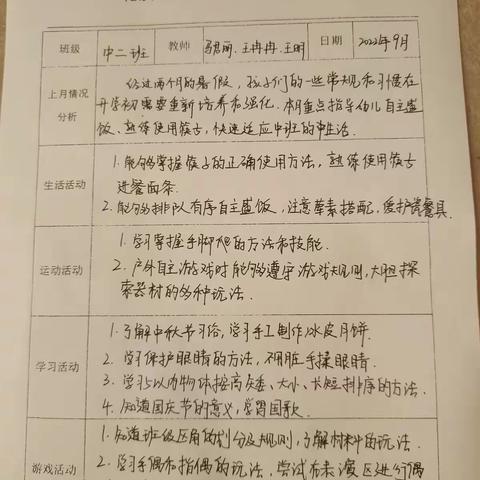 班级 中二班 教师 马君丽、王冉冉、王明 日期 2022年9月
上月情况分析
经过两个月的暑假，孩子们的一些常规和习惯在
开学初需要重新培养和强化。本月重点指导幼儿自主盛
饭、熟练使用筷子，快速适应中班的生活。
生活活动
1.能够掌握筷子的正确使用方法，熟练使用筷子
进餐面条.
2.能够排队有序自主盛饭，注意荤素搭配，爱护瓷餐具.
运动活动
1.学习掌握手脚爬的方法和技能.
2.户外自主游戏时能够遵守游戏规则，大胆探
索器材的多种玩法.
学习活动
1.了解中秋节习俗，学习手工制作冰皮月饼.
2.学习保护眼睛的方法，不用脏手揉眼睛.
3.学习5以内物体按高矮、大小、长短排序的方法.
4.知道国庆节的意义，学习国歌.
游戏活动
1.知道班级区角的划分及规则，了解材料的玩法.
2.学习手偶和指偶的玩法，尝试在表演区进行偶